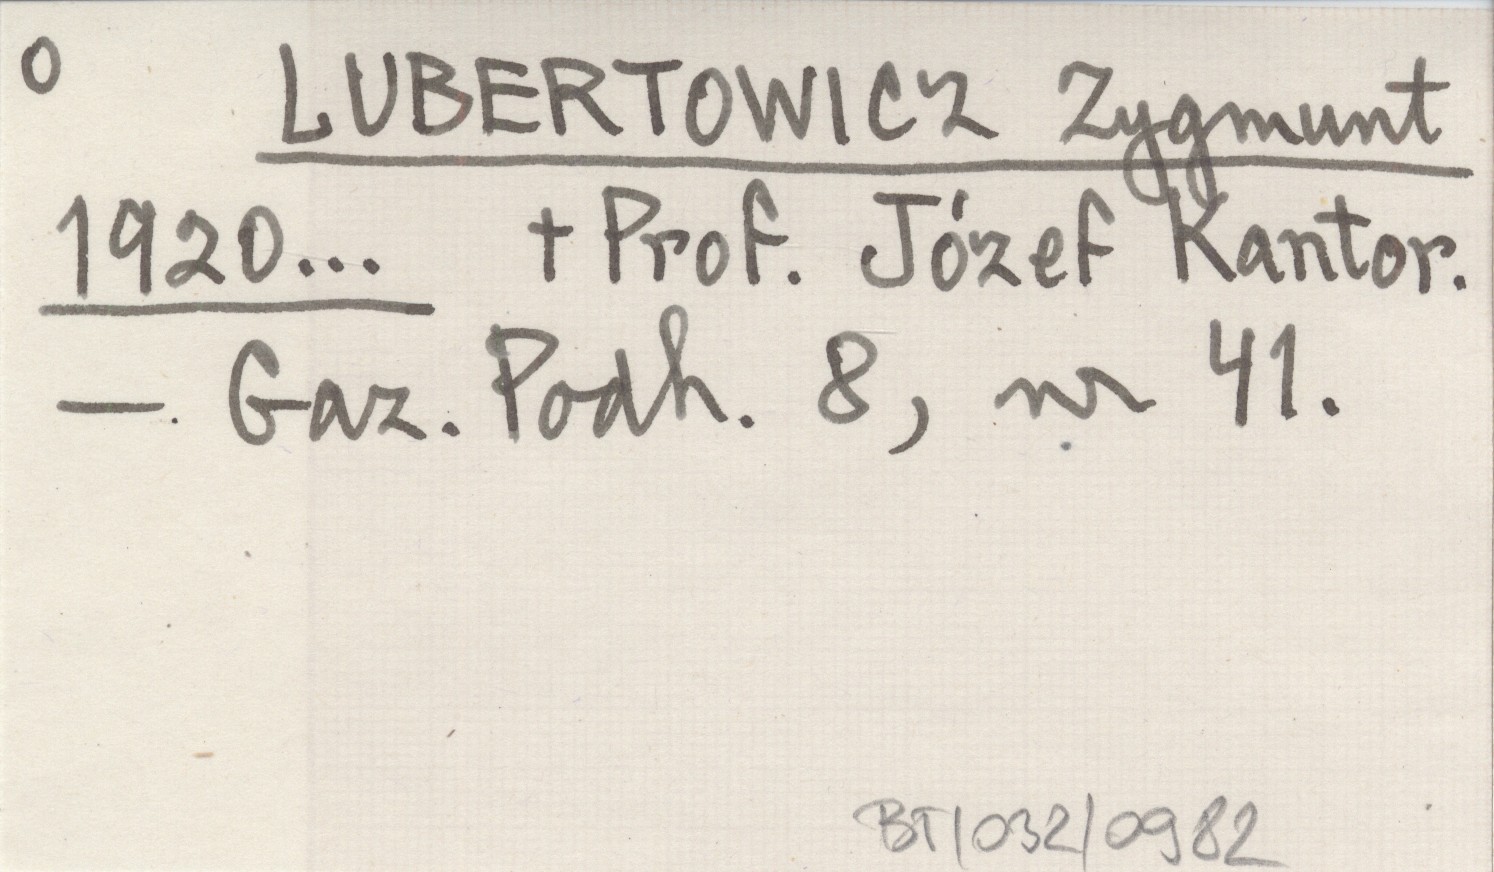 O LUBERTOWICZ Zygmunt
1920... + Prof. Józef Kantor.
— . Gaz. Podh. 8, nr 41.
BT/032/0982